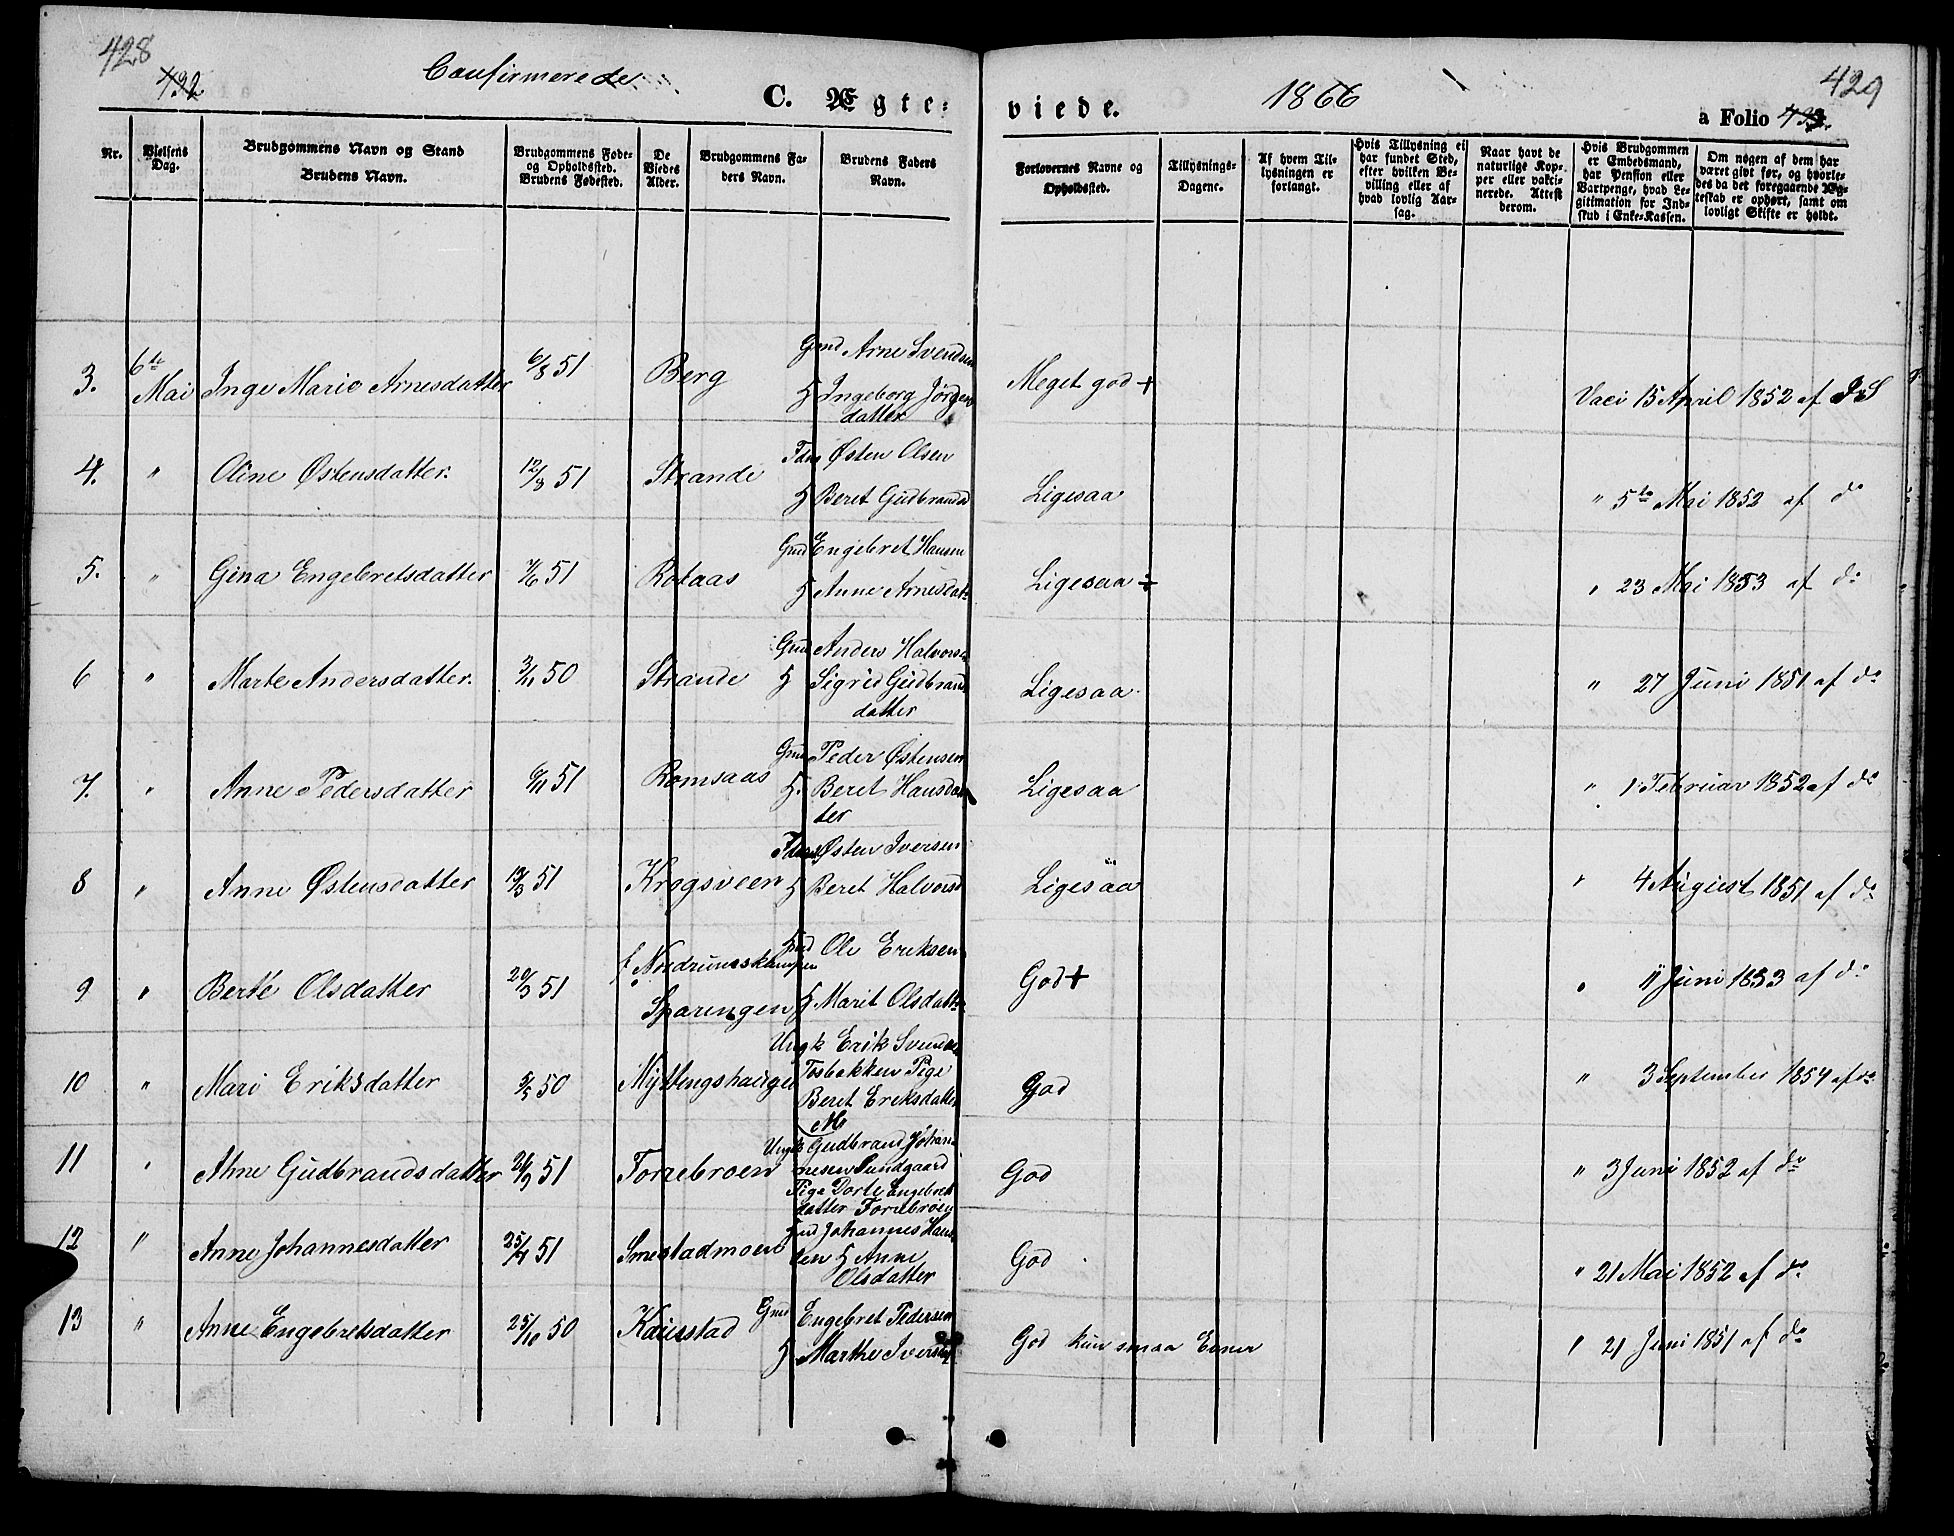 428
432.
Confirmerede
C. Ægte-
viede.
1866
429
a Folio
Nr.
Vielsens Dag.
Brudgommens Navn og Stand
Brudens Navn.
Brudgommens Føde-
og Opholdssted.
Brudens Fødested.
De
Viedes
Alder.
Brudgommens Fa-
ders Navn.
Brudens Faders
Navn.
Forlovernes Navne og
Opholdssted.
Tillysnings-
Dagene.
Af hvem Til-
lysningen er
forlangt.
Hvis Tillysning ei
har fundet Sted,
efter hvilken Be-
villing eller af
hvad lovlig Aar-
sag.
Naar havt de
naturlige Kop-
per eller vakci-
nerede. Attest
derom.
Hvis Brudgommen
er Embedsmand,
har Pension eller
Vartpenge, hvad Le-
gitimation for Ind-
skud i Enke-Kassen.
Om nogen af dem har
været gift før, og hvorle-
des da det foregaaende Æg-
teskab er ophørt, samt om
lovligt Skifte er holdt.
3. 6te Mai Inge Marie Arnesdatter 6/8 51 Berg Gmd Arne Svendsen
H Ingeborg Jørgens
datter
Meget god + Vaci 15 April 1852 af J.S
4. " Oline Østensdatter. 12/8 51 Strande Østen Olsen
H Beret Gudbrandsd
Ligesaa " 5te Mai 1852 af do
5. " Gina Engebretsdatter 51 Rotaas Gmd Engebret Hansen
H Anne Arnesdat
Ligesaa + " 23 Mai 1853 af do
6 " Marte Andersdatter. 3/11 50 Strande Gmd Anders Halvorsen
H Sigrid Gudbrands
datter
Ligesaa " 27 Juni 1851 af do
7. " Anne Pedersdatter 51 Romsaas Gmd Peder Østensen
H. Beret Hansdat
ter
Ligesaa " 1 Februar 1852 af do
8 " Anne Østensdatter 51 Krogsveen Østen Iversen
H Beret Halvorsd
Ligesaa " 4 August 1851 af do
9 " Berte Olsdatter 20/3 51 f. Nordrumskampen
Sparengen
Ole Eriksen
H Marit Olsdatter
God + " 11 Juni 1853 af do
10 " Mari Eriksdatter 50 Myttingshaugen Ungk Erik Svends
Tosbakken Pige
Beret Eriksdatter
God " 3 September 1854 af do
11 " Anne Gudbrandsdatter 26/9 51 Torrebroen Ungk Gudbrand Johan-
nesen Sundgaard
Pige Dorte Engebrets
datter Torrebroen
God " 3 Juni 1852 af do
12 " Anne Johannesdatter 51 Smestadmoen Johannes Han
sen H Anne
Olsdatter
God " 21 Mai 1852 af do
13 " Anne Engebretsdatter 25/10 50 Kausstad Gmd Engebret Pedersen
H Marthe Iversd
God kun smaa Evner " 21 Juni 1851 af do